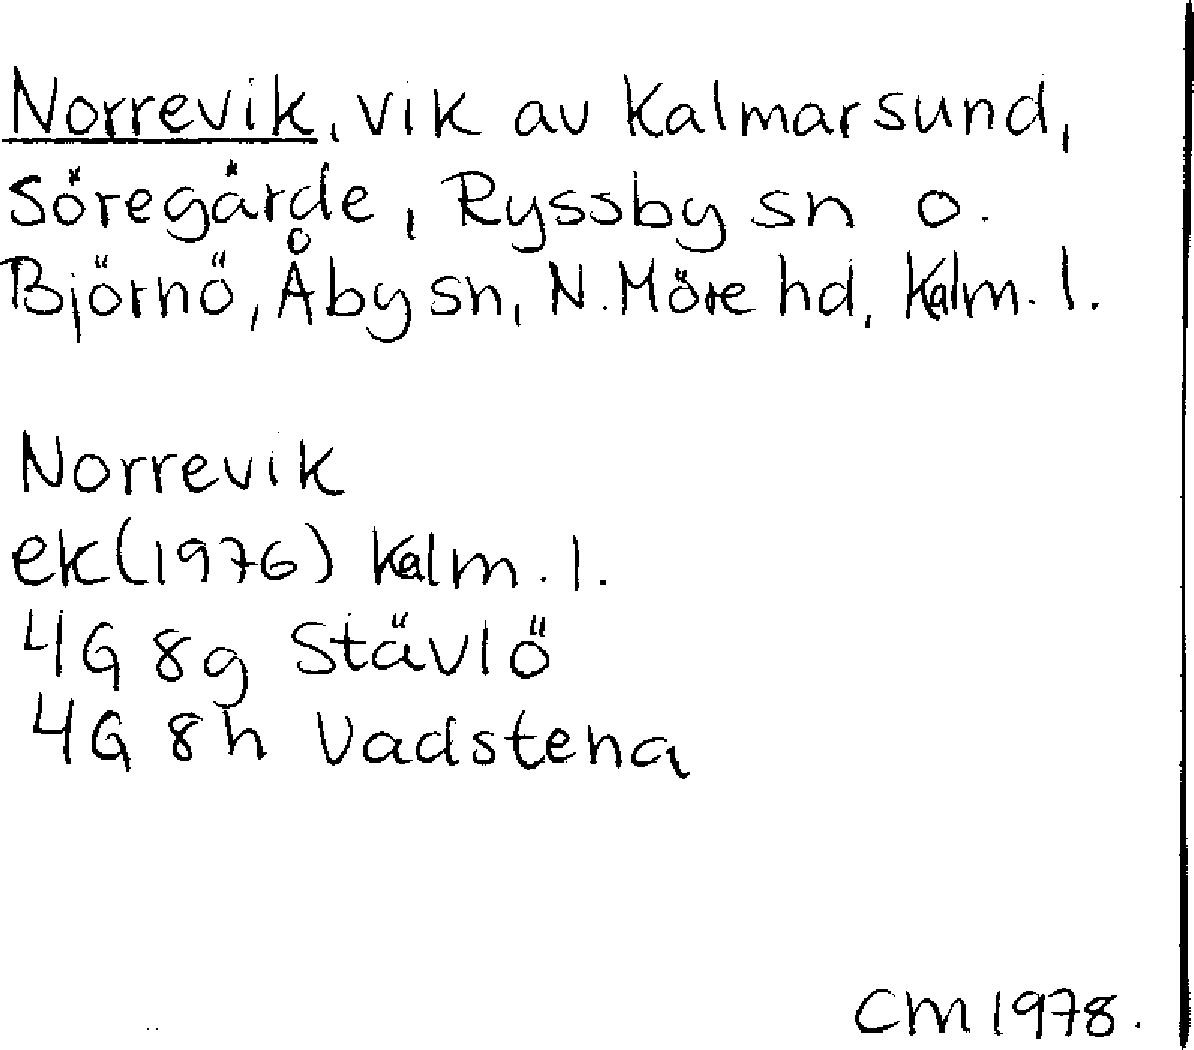 Norrevik, vik av Kalmarsund,
Söregärde, Ryssby sn o.
Björnö, Åby sn, N. Möre hd, Kalm. l.
Norrevik
ek (1976) Kalm. l.
4G 8g Stävlö
4G 8h Vadstena
CM 1978.